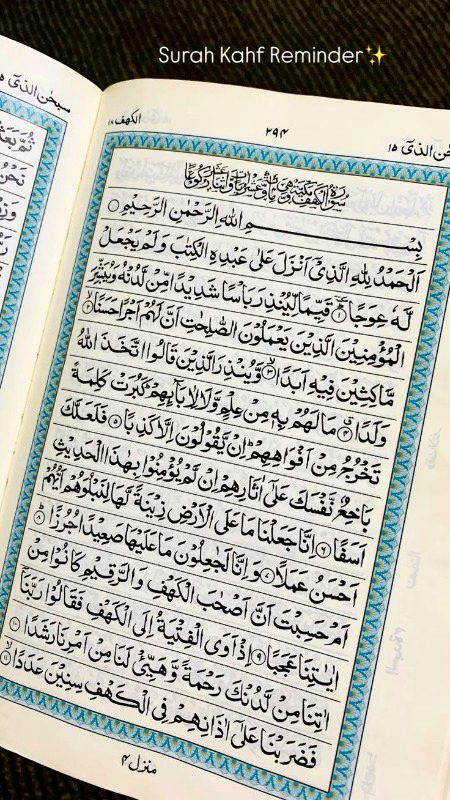 Surah Kahf Reminder✨
سبحٰن الذیٓ ۱۵
الکهف ۱۸
۲۹۴
سُوْرَةُ الْكَهْفِ مَكِّيَّةٌ
بِسْمِ اللهِ الرَّحْمٰنِ الرَّحِيْمِ
اَلْحَمْدُ لِلّٰهِ الَّذِيْٓ اَنْزَلَ عَلٰى عَبْدِهِ الْكِتٰبَ وَلَمْ يَجْعَلْ
لَّهٗ عِوَجًا ۱ قَيِّمًا لِّيُنْذِرَ بَاْسًا شَدِيْدًا مِّنْ لَّدُنْهُ وَيُبَشِّرَ
الْمُؤْمِنِيْنَ الَّذِيْنَ يَعْمَلُوْنَ الصّٰلِحٰتِ اَنَّ لَهُمْ اَجْرًا حَسَنًا ۲
مَّاكِثِيْنَ فِيْهِ اَبَدًا ۳ وَّيُنْذِرَ الَّذِيْنَ قَالُوا اتَّخَذَ اللّٰهُ
وَلَدًا ۴ مَا لَهُمْ بِهٖ مِنْ عِلْمٍ وَّلَا لِاٰبَآئِهِمْ كَبُرَتْ كَلِمَةً
تَخْرُجُ مِنْ اَفْوَاهِهِمْ اِنْ يَّقُوْلُوْنَ اِلَّا كَذِبًا ۵ فَلَعَلَّكَ
بَاخِعٌ نَّفْسَكَ عَلٰٓى اٰثَارِهِمْ اِنْ لَّمْ يُؤْمِنُوْا بِهٰذَا الْحَدِيْثِ
اَسَفًا ۶ اِنَّا جَعَلْنَا مَا عَلَى الْاَرْضِ زِيْنَةً لَّهَا لِنَبْلُوَهُمْ اَيُّهُمْ
اَحْسَنُ عَمَلًا ۷ وَاِنَّا لَجٰعِلُوْنَ مَا عَلَيْهَا صَعِيْدًا جُرُزًا ۸
اَمْ حَسِبْتَ اَنَّ اَصْحٰبَ الْكَهْفِ وَالرَّقِيْمِ كَانُوْا مِنْ
اٰيٰتِنَا عَجَبًا ۹ اِذْ اَوَى الْفِتْيَةُ اِلَى الْكَهْفِ فَقَالُوْا رَبَّنَآ
اٰتِنَا مِنْ لَّدُنْكَ رَحْمَةً وَّهَيِّئْ لَنَا مِنْ اَمْرِنَا رَشَدًا ۱۰
فَضَرَبْنَا عَلٰٓى اٰذَانِهِمْ فِي الْكَهْفِ سِنِيْنَ عَدَدًا ۱۱
منزل ۴